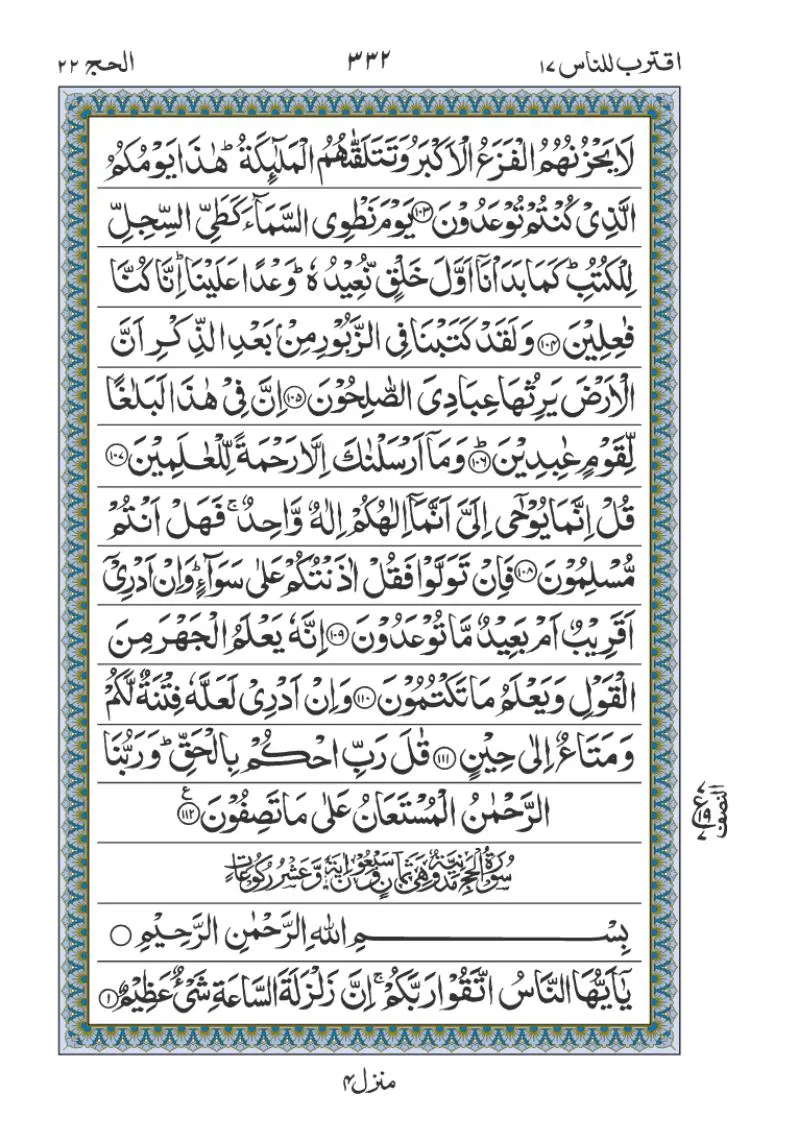 اقترب للناس ۱۷
۳۳۲
الحج ۲۲
لَا يَحْزُنُهُمُ الْفَزَعُ الْاَكْبَرُ وَتَتَلَقّٰىهُمُ الْمَلٰٓئِكَةُ ؕ هٰذَا يَوْمُكُمُ
الَّذِىْ كُنْتُمْ تُوْعَدُوْنَ ﴿۱۰۳﴾ يَوْمَ نَطْوِى السَّمَآءَ كَطَىِّ السِّجِلِّ
لِلْكُتُبِ ؕ كَمَا بَدَاْنَاۤ اَوَّلَ خَلْقٍ نُّعِيْدُهٗ ؕ وَعْدًا عَلَيْنَا ؕ اِنَّا كُنَّا
فٰعِلِيْنَ ﴿۱۰۴﴾ وَلَقَدْ كَتَبْنَا فِى الزَّبُوْرِ مِنْۢ بَعْدِ الذِّكْرِ اَنَّ
الْاَرْضَ يَرِثُهَا عِبَادِىَ الصّٰلِحُوْنَ ﴿۱۰۵﴾ اِنَّ فِىْ هٰذَا لَبَلٰغًا
لِّقَوْمٍ عٰبِدِيْنَ ؕ ﴿۱۰۶﴾ وَمَاۤ اَرْسَلْنٰكَ اِلَّا رَحْمَةً لِّلْعٰلَمِيْنَ ﴿۱۰۷﴾
قُلْ اِنَّمَا يُوْحٰٓى اِلَىَّ اَنَّمَاۤ اِلٰهُكُمْ اِلٰهٌ وَّاحِدٌ ۚ فَهَلْ اَنْتُمْ
مُّسْلِمُوْنَ ﴿۱۰۸﴾ فَاِنْ تَوَلَّوْا فَقُلْ اٰذَنْتُكُمْ عَلٰى سَوَآءٍ ؕ وَاِنْ اَدْرِىْۤ
اَقَرِيْبٌ اَمْ بَعِيْدٌ مَّا تُوْعَدُوْنَ ﴿۱۰۹﴾ اِنَّهٗ يَعْلَمُ الْجَهْرَ مِنَ
الْقَوْلِ وَيَعْلَمُ مَا تَكْتُمُوْنَ ﴿۱۱۰﴾ وَاِنْ اَدْرِىْ لَعَلَّهٗ فِتْنَةٌ لَّكُمْ
وَمَتَاعٌ اِلٰى حِيْنٍ ﴿۱۱۱﴾ قٰلَ رَبِّ احْكُمْ بِالْحَقِّ ؕ وَرَبُّنَا
الرَّحْمٰنُ الْمُسْتَعَانُ عَلٰى مَا تَصِفُوْنَ ﴿۱۱۲﴾ ع
سُوْرَةُ الْحَجِّ مَدَنِيَّةٌ وَّهِىَ ثَمَانٍ وَّسَبْعُوْنَ اٰيَةً وَّعَشْرُ رُكُوْعَاتٍ
بِسْمِ اللّٰهِ الرَّحْمٰنِ الرَّحِيْمِ
يٰۤاَيُّهَا النَّاسُ اتَّقُوْا رَبَّكُمْ ۚ اِنَّ زَلْزَلَةَ السَّاعَةِ شَىْءٌ عَظِيْمٌ ﴿۱﴾
النصف
منزل ۴